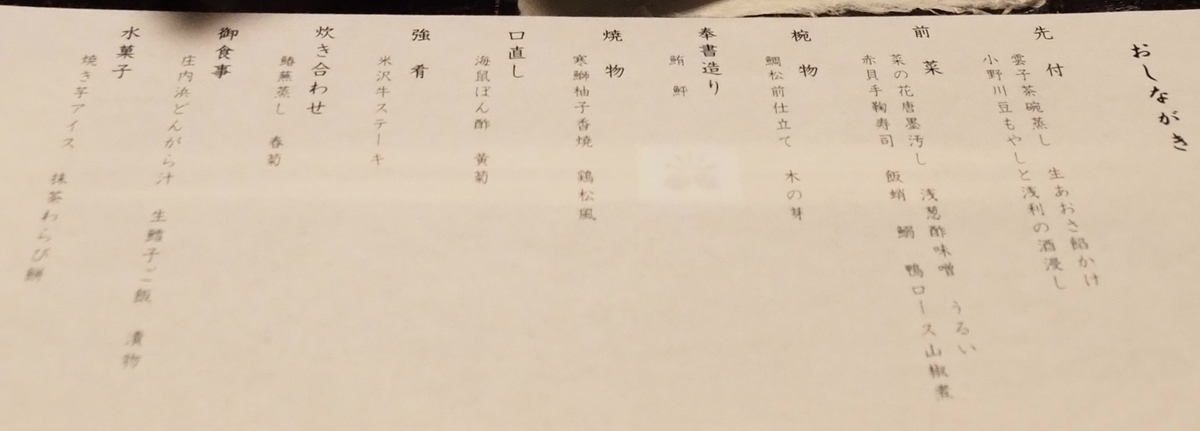 おしながき
先付
雲子茶碗蒸し 生あおさ餡かけ
小野川豆もやしと浅利の酒浸し
前菜
菜の花唐墨汚し 浅葱酢味噌 うるい
赤貝手鞠寿司 飯蛸 鰯 鴨ロース山椒煮
椀物
鯛松前仕立て 木の芽
奉書造り
鮪 鮃
焼物
寒鰤柚子香焼 鶏松風
口直し
海鼠ぽん酢 黄菊
強肴
米沢牛ステーキ
炊き合わせ
鰆蕪蒸し 春菊
御食事
庄内浜どんがら汁 生鱈子ご飯 漬物
水菓子
焼き芋アイス 抹茶わらび餅